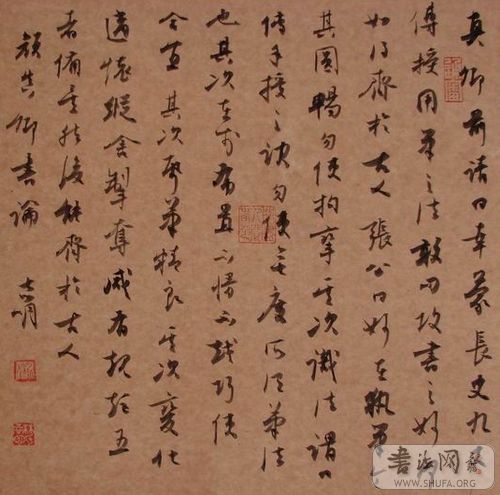 真卿前請曰幸蒙長史九丈
傳授用筆之法敢問攻書之妙何
如得齊於古人張公曰妙在執筆令
其圓暢勿使拘攣其次識法謂口
傳手授之訣勿使無度所謂筆法
也其次在於布置不慢不越巧使
合宜其次紙筆精良其次變化
適懷縱舍掣奪咸有規矩五
者備矣然後能齊於古人
顏真卿書論
書法网
WWW.SHUFA.ORG